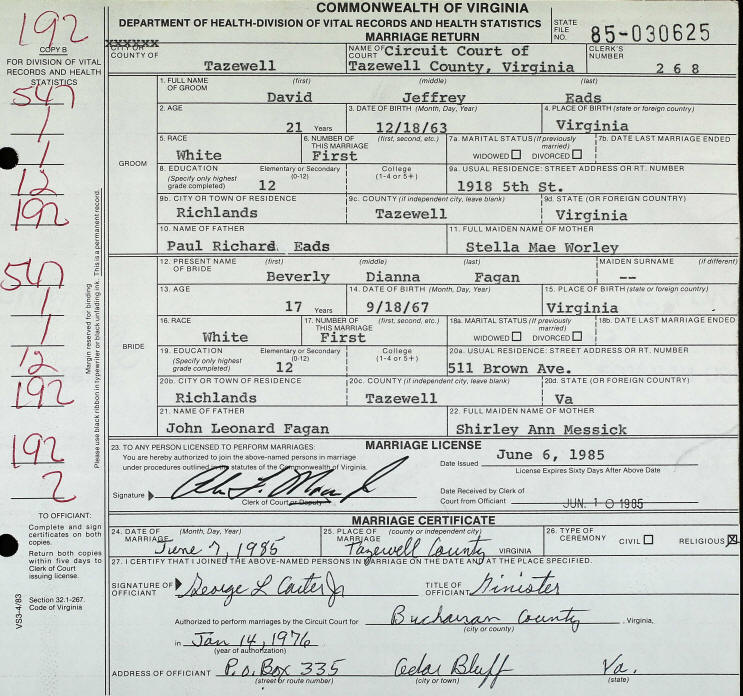 COMMONWEALTH OF VIRGINIA
DEPARTMENT OF HEALTH-DIVISION OF VITAL RECORDS AND HEALTH STATISTICS
MARRIAGE RETURN
STATE FILE NO. 85-030625
192
COPY B
FOR DIVISION OF VITAL
RECORDS AND HEALTH
STATISTICS
547
1
1
12
192
547
1
1
12
192
192
2
Margin reserved for binding
Please use black ribbon in typewriter or black unfading ink. This is a permanent record.
TO OFFICIAL:
Complete and sign
certificates on both
copies.
Return both copies
within five days to
Clerk of Court
issuing license.
Section 32.1-267.
Code of Virginia
VS3-4/83
XXXXXX
CITY OR
COUNTY OF
Tazewell
NAME OF COURT Circuit Court of
Tazewell County, Virginia
CLERK'S NUMBER
268
GROOM
1. FULL NAME OF GROOM (first) (middle) (last)
David Jeffrey Eads
2. AGE 3. DATE OF BIRTH (Month, Day, Year) 4. PLACE OF BIRTH (state or foreign country)
21 Years 12/18/63 Virginia
5. RACE 6. NUMBER OF THIS MARRIAGE (first, second, etc.) 7a. MARITAL STATUS (If previously married) 7b. DATE LAST MARRIAGE ENDED
White First WIDOWED DIVORCED
8. EDUCATION (Specify only highest grade completed) Elementary or Secondary (0-12) College (1-4 or 5+) 9a. USUAL RESIDENCE: STREET ADDRESS OR RT. NUMBER
12 1918 5th St.
9b. CITY OR TOWN OF RESIDENCE 9c. COUNTY (if independent city, leave blank) 9d. STATE (OR FOREIGN COUNTRY)
Richlands Tazewell Virginia
10. NAME OF FATHER 11. FULL MAIDEN NAME OF MOTHER
Paul Richard Eads Stella Mae Worley
BRIDE
12. PRESENT NAME OF BRIDE (first) (middle) (last) MAIDEN SURNAME (if different)
Beverly Dianna Fagan --
13. AGE 14. DATE OF BIRTH (Month, Day, Year) 15. PLACE OF BIRTH (state or foreign country)
17 Years 9/18/67 Virginia
16. RACE 17. NUMBER OF THIS MARRIAGE (first, second, etc.) 18a. MARITAL STATUS (If previously married) 18b. DATE LAST MARRIAGE ENDED
White First WIDOWED DIVORCED
19. EDUCATION (Specify only highest grade completed) Elementary or Secondary (0-12) College (1-4 or 5+) 20a. USUAL RESIDENCE: STREET ADDRESS OR RT. NUMBER
12 511 Brown Ave.
20b. CITY OR TOWN OF RESIDENCE 20c. COUNTY (if independent city, leave blank) 20d. STATE (OR FOREIGN COUNTRY)
Richlands Tazewell Va
21. NAME OF FATHER 22. FULL MAIDEN NAME OF MOTHER
John Leonard Fagan Shirley Ann Messick
MARRIAGE LICENSE
23. TO ANY PERSON LICENSED TO PERFORM MARRIAGES:
You are hereby authorized to join the above-named persons in marriage
under procedures outlined in the statutes of the Commonwealth of Virginia.
Date Issued June 6, 1985
License Expires Sixty Days After Above Date
Signature
Clerk of Court or Deputy
Date Received by Clerk of
Court from Official JUN. 10 1985
MARRIAGE CERTIFICATE
24. DATE OF MARRIAGE (Month, Day, Year) 25. PLACE OF MARRIAGE (county or independent city) 26. TYPE OF CEREMONY CIVIL RELIGIOUS
June 7, 1985 Tazewell County VIRGINIA
27. I CERTIFY THAT I JOINED THE ABOVE-NAMED PERSONS IN MARRIAGE ON THE DATE AND AT THE PLACE SPECIFIED.
SIGNATURE OF OFFICIANT George L Carter Jr TITLE OF OFFICIANT Minister
Authorized to perform marriages by the Circuit Court for Buchanan County, Virginia,
(city or county)
in Jan 14, 1976
(year of authorization)
ADDRESS OF OFFICIANT P.O. Box 335 Cedar Bluff Va.
(street or route number) (city or town) (state)